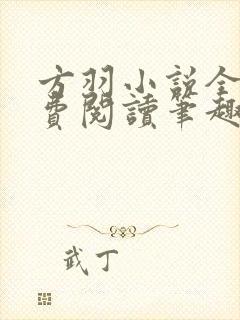 方羽小説全
費閱讀筆趣
武丁